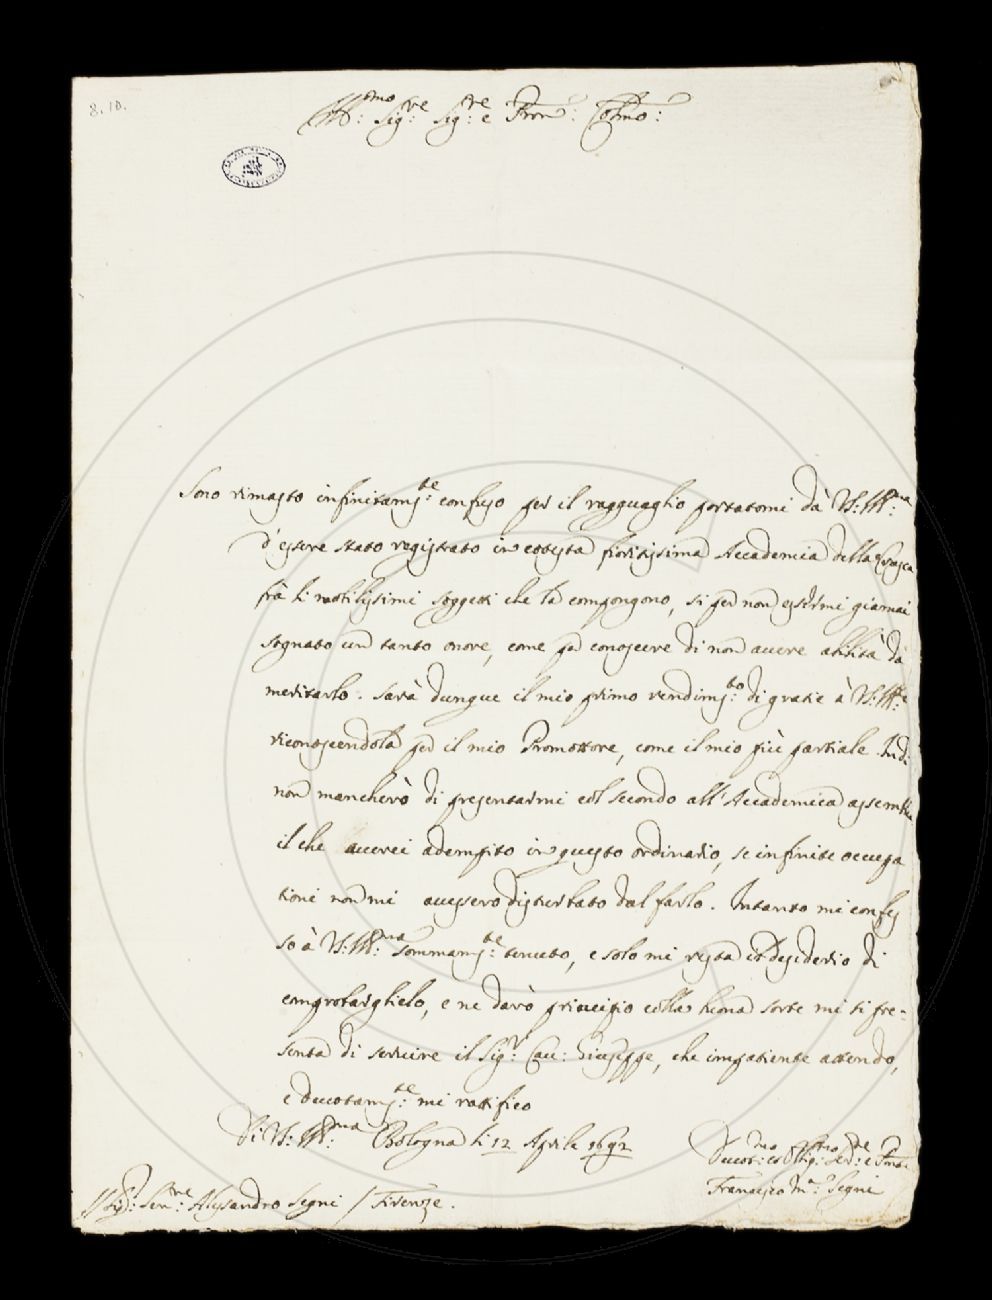 8. 10.
Ill:mo Sig:re Sig:re e Pron: Colmo:
Sono rimasto infinitam:te confuso per il ragguaglio portatomi dà VS: Ill:ma
d'essere stato registrato in cotesta fioritissima Accademia della Crusca
frà li nobilissimi soggetti che la compongono, si per non essermi giamai
sognato un tanto onore, come per conoscere di non avere abilità dà
meritarlo. Sarà dunque il mio primo rendim:to di gratie à VS: Ill:
riconoscendola per il mio Promottore, come il mio più partiale. Indi
non mancherò di presentarmi col secondo all'Accademica assemblea
il che averei adempito in questo ordinario, se infinite occupa
tioni non mi avessero disturbato dal farlo. Intanto mi confes
so à VS: Ill:ma sommam:te tenuto, e solo mi resta il desiderio di
comprobarghielo, e ne darò principio colla buona sorte mi si pre-
senta di servire il Sig:r Cau: Giuseppe, che impatiente attendo,
e devotam:te mi ratifico
Di VS: Ill:ma Bologna li 12 Aprile 1692
Devot:mo et Obblig:mo Ser:re e Parte
Francesco M.a Segni
Sig:r Sen:re Alessandro Segni / Firenze.